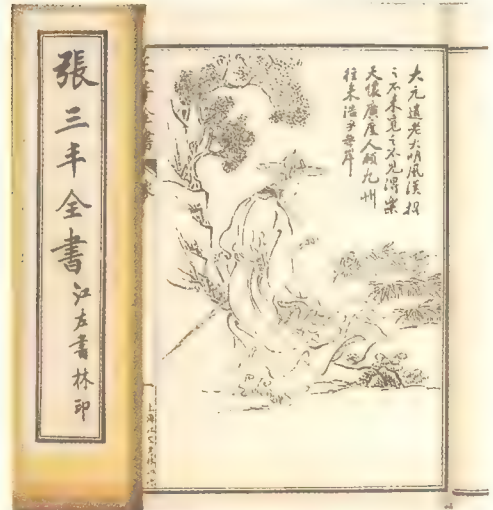 張三丰全書 江左書林印
大元遺老大明風漢招
之不來覓之不見得樂
天懷廣度人願九州
往來浩乎無岸
三丰全書